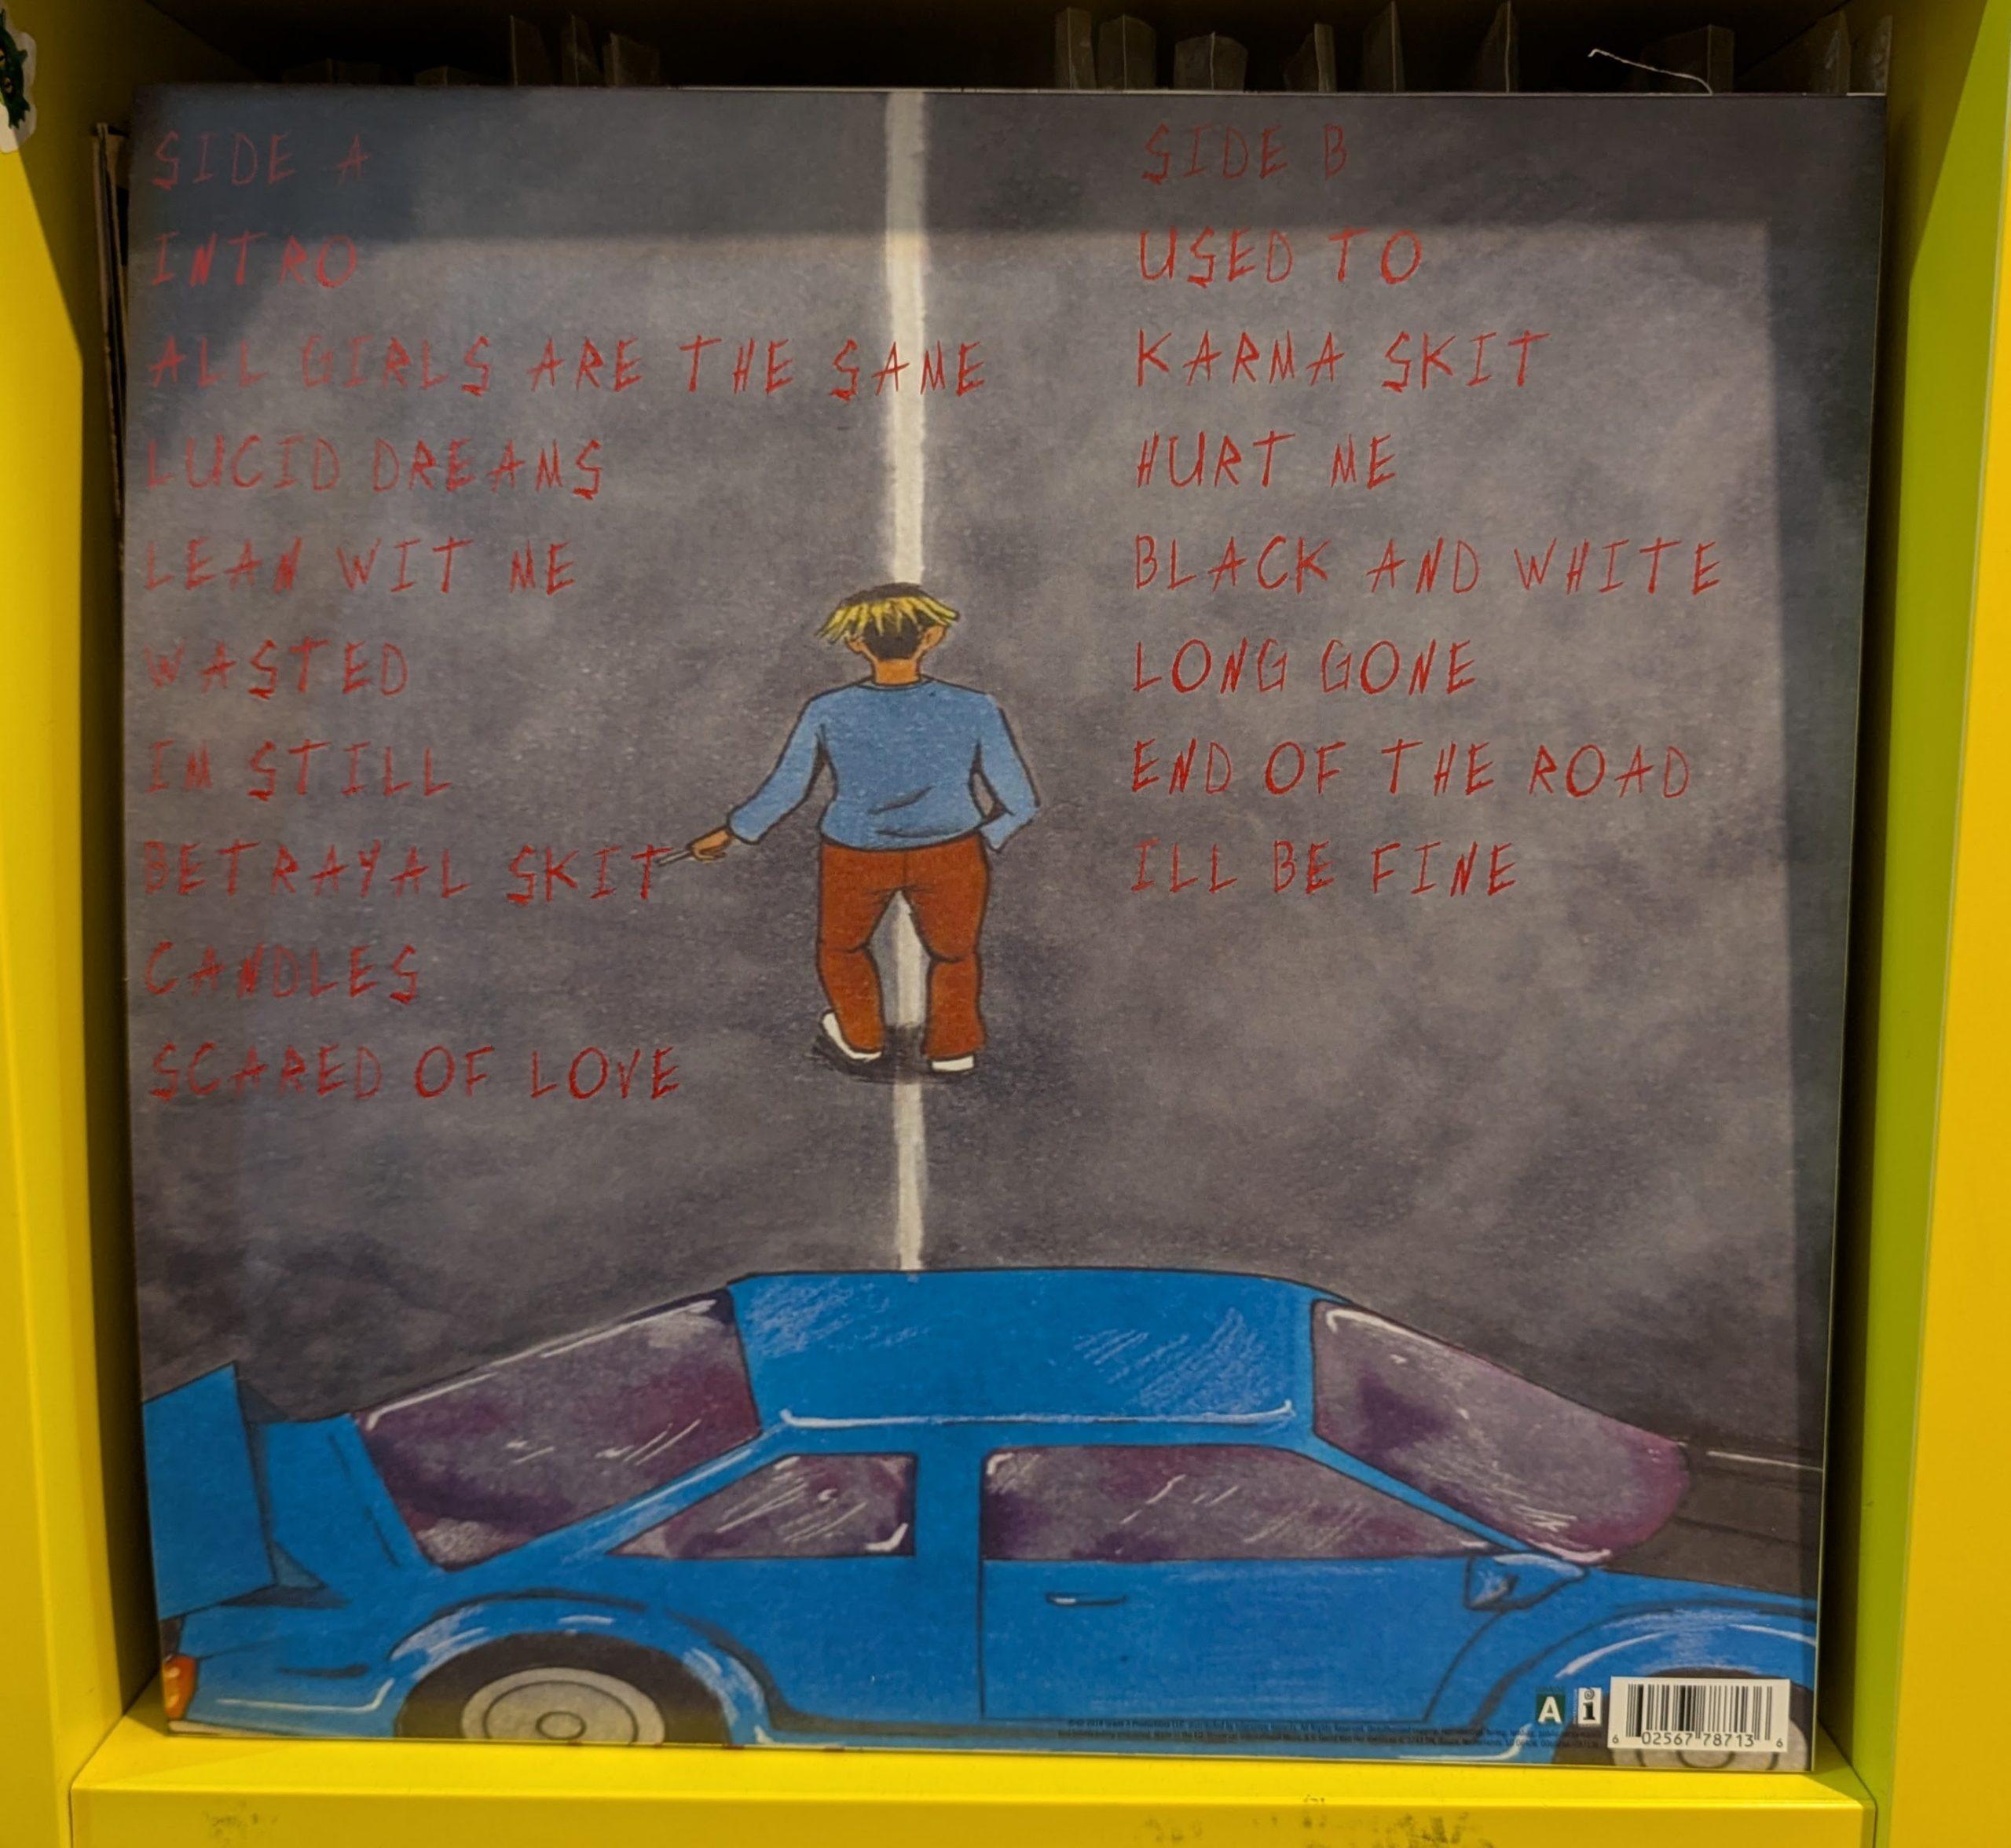 SIDE A
INTRO
ALL GIRLS ARE THE SAME
LUCID DREAMS
LEAN WIT ME
WASTED
IM STILL
BETRAYAL SKIT
CANDLES
SCARED OF LOVE
SIDE B
USED TO
KARMA SKIT
HURT ME
BLACK AND WHITE
LONG GONE
END OF THE ROAD
ILL BE FINE
A i
6 02567 78713 6